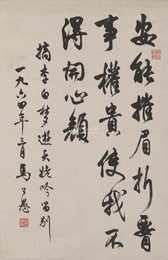 安能摧眉折腰
事權貴使我不
得開心顏
摘李白夢遊天姥吟留別
一九六四年三月馬公愚